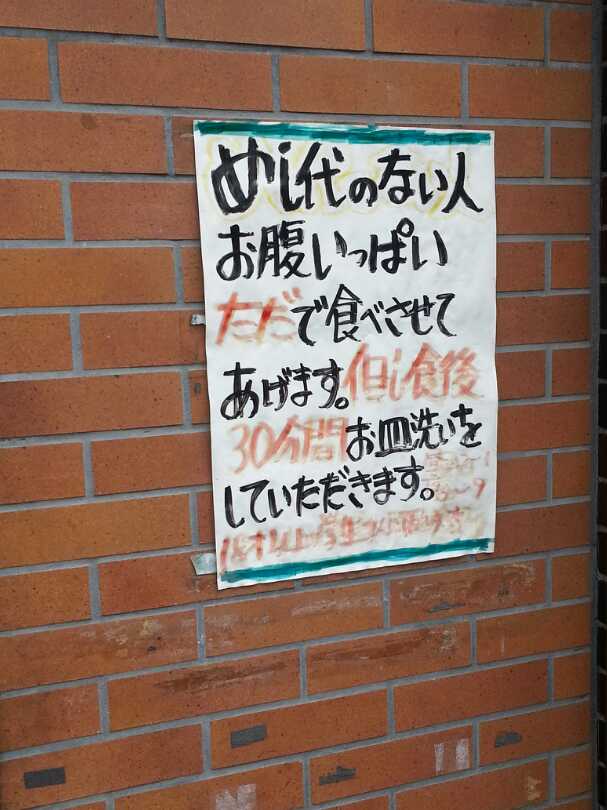 めし代のない人
お腹いっぱい
ただで食べさせて
あげます。但し食後
30分間お皿洗いを
していただきます。
18才以上 学生さんに限ります